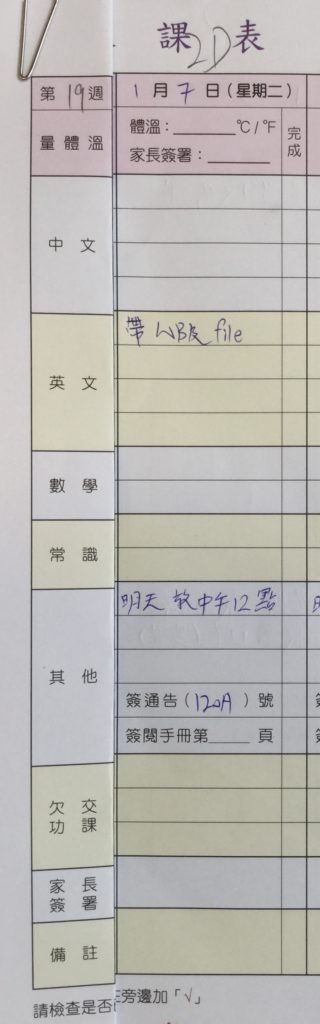 課2D表
第19週 1月7日(星期二)
量體溫
體溫:______℃/℉
家長簽署:______
完成
中文
英文
帶 file
數學
常識
其他
明天放中午12點
簽通告(120A)號
簽閱手冊第____頁
欠交功課
家長簽署
備註
請檢查是否
旁邊加「√」